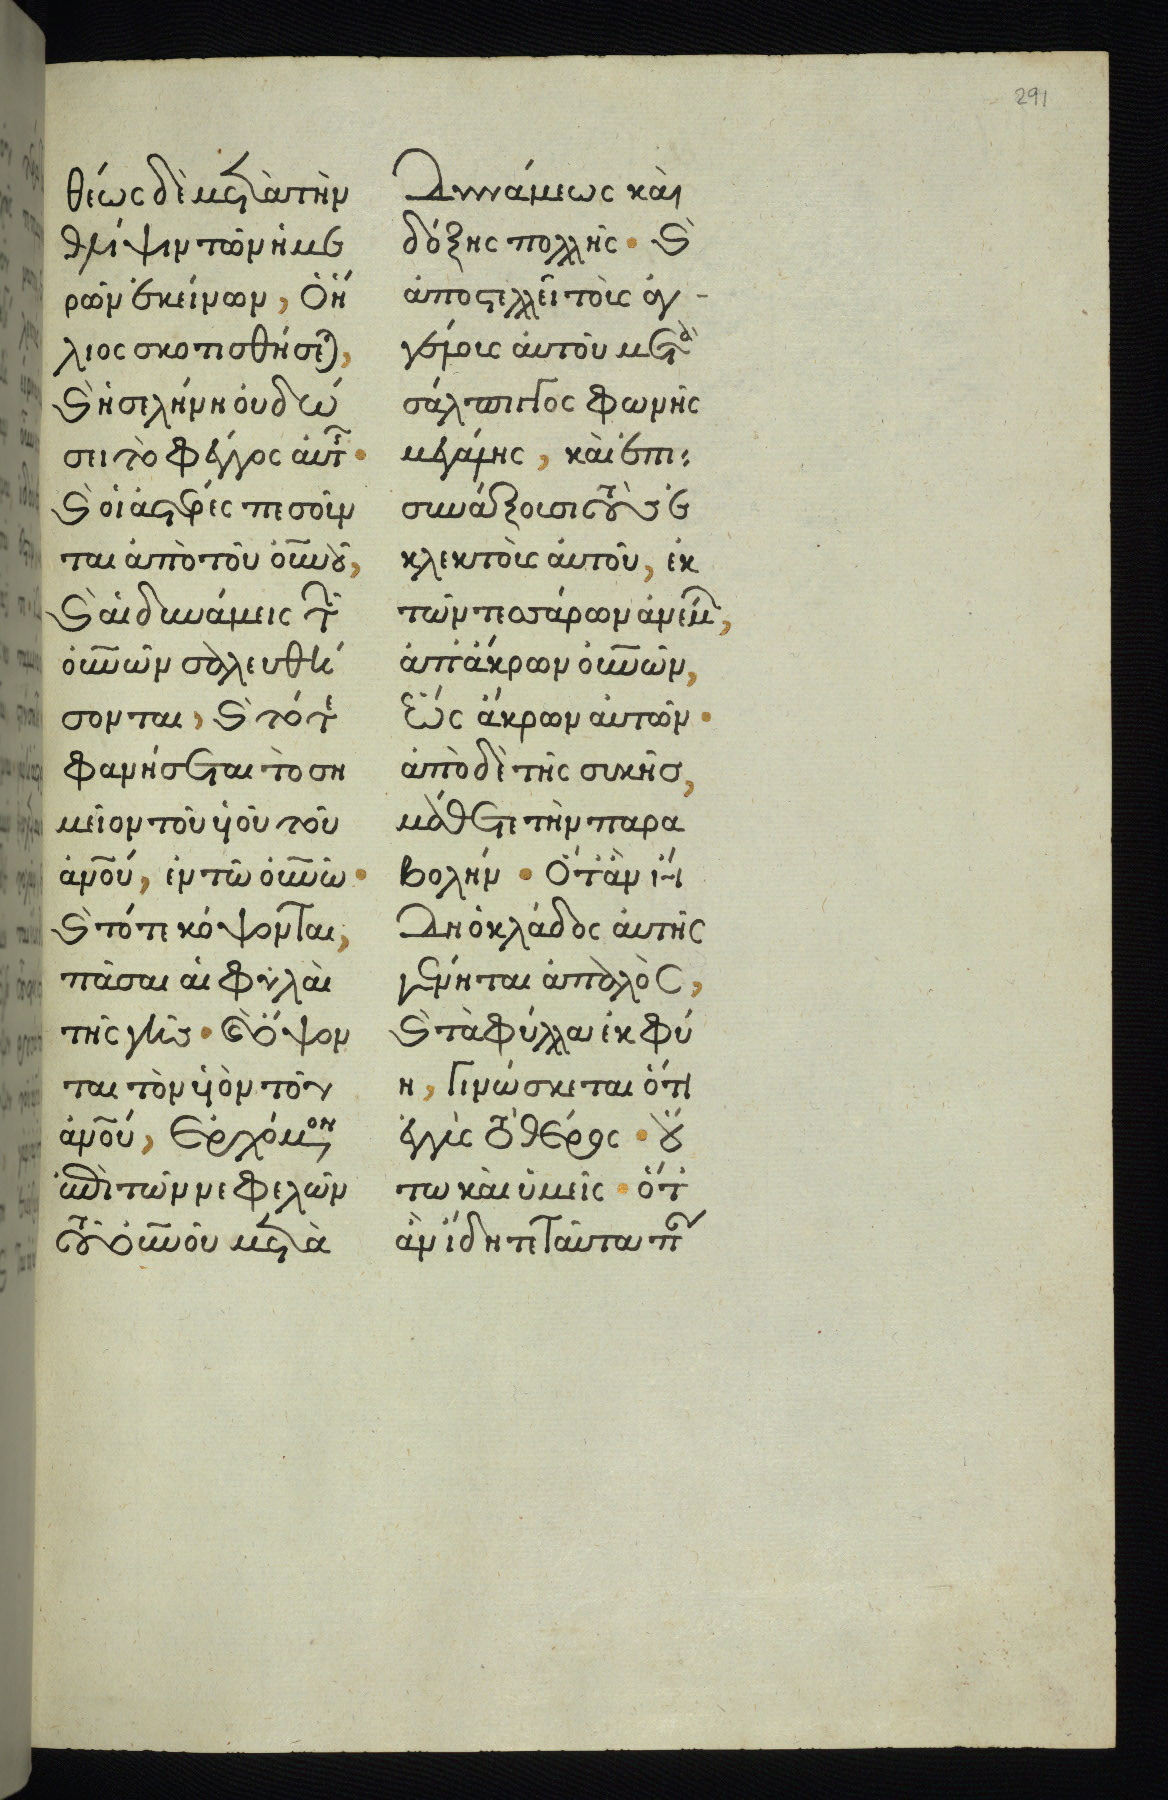 291
θέως δὲ μετὰ τὴν
θλίψιν τῶν ἡμε
ρῶν ἐκείνων, ὁ ἥ
λιος σκοτισθήσεται,
καὶ ἡ σελήνη οὐ δώ
σει τὸ φέγγος αὐτῆς·
καὶ οἱ ἀστέρες πεσοῦν
ται ἀπὸ τοῦ οὐνοῦ,
καὶ αἱ δυνάμεις τῶν
οὐνῶν σαλευθή
σονται, καὶ τότε
φανήσεται τὸ ση
μεῖον τοῦ υἱοῦ τοῦ
ἀνου, ἐν τῶ οὐνῶ·
καὶ τότε κόψονται,
πᾶσαι αἱ φυλαὶ
τῆς γῆς· καὶ ὄψον
ται τὸν υἱὸν τοῦ
ἀνου, ἐρχόμενον
ἐπὶ τῶν νεφελῶν
τοῦ οὐνοῦ μετὰ
δυνάμεως καὶ
δόξης πολλῆς· καὶ
ἀποστελλεῖ τοὺς ἀγ-
γέλους αὐτοῦ μετὰ
σάλπιγγος φωνῆς
μεγάλης, καὶ ἐπι
συνάξουσι τοὺς ἐ
κλεκτοὺς αὐτοῦ, ἐκ
τῶν τεσσάρων ἀνέμων,
ἀπ' ἄκρων οὐνῶν,
ἕως ἄκρων αὐτῶν·
ἀπὸ δὲ τῆς συκῆς,
μάθετε τὴν παρα
βολήν· ὅταν ἤ
δη ὁ κλάδος αὐτῆς
γένηται ἁπαλὸς,
καὶ τὰ φύλλα ἐκφύ
η, γινώσκεται ὅτι
ἐγγὺς τὸ θέρος· οὕ
τω καὶ ὑμεῖς· ὅτ
ἂν ἴδητε ταῦτα πάντα